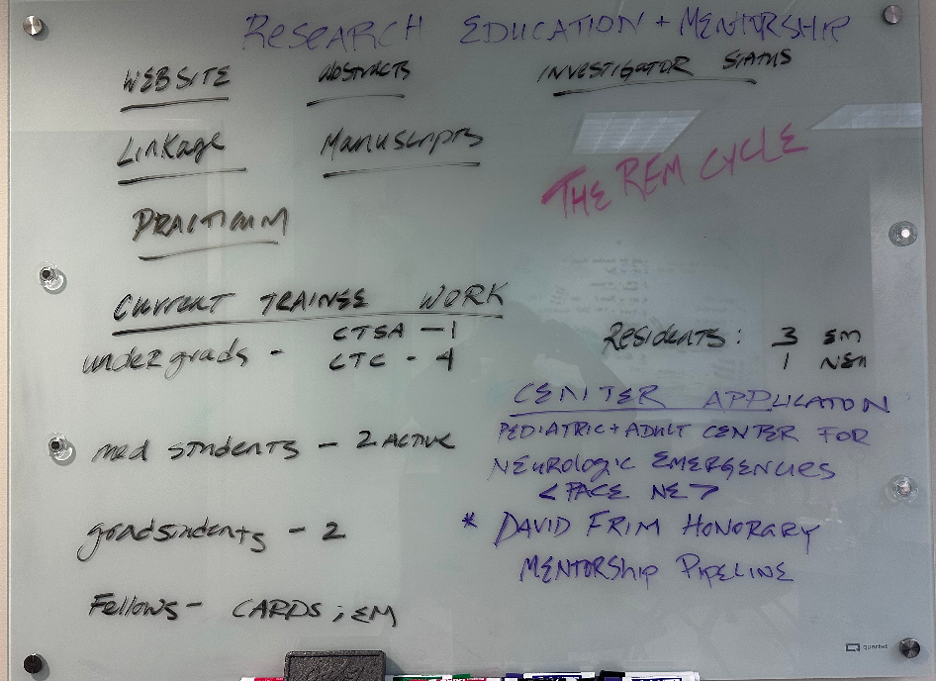 RESEARCH EDUCATION + MENTORSHIP
WEBSITE Abstracts INVESTIGATOR STATUS
Linkage Manuscripts
THE REM CYCLE
PRACTICUM
CURRENT TRAINEE WORK
undergrads - CTSA - 1
CTC - 4
Residents: 3 EM
1 NEU
CENTER APPLICATON
PEDIATRIC + ADULT CENTER FOR
NEurologic EMERGENCIES
<PACE NE>
med students - 2 ACTIVE
* DAVID FRIM HONORARY
MENTORShip PIPELINE
gradstudents - 2
Fellows - CARDS ; EM
quartet